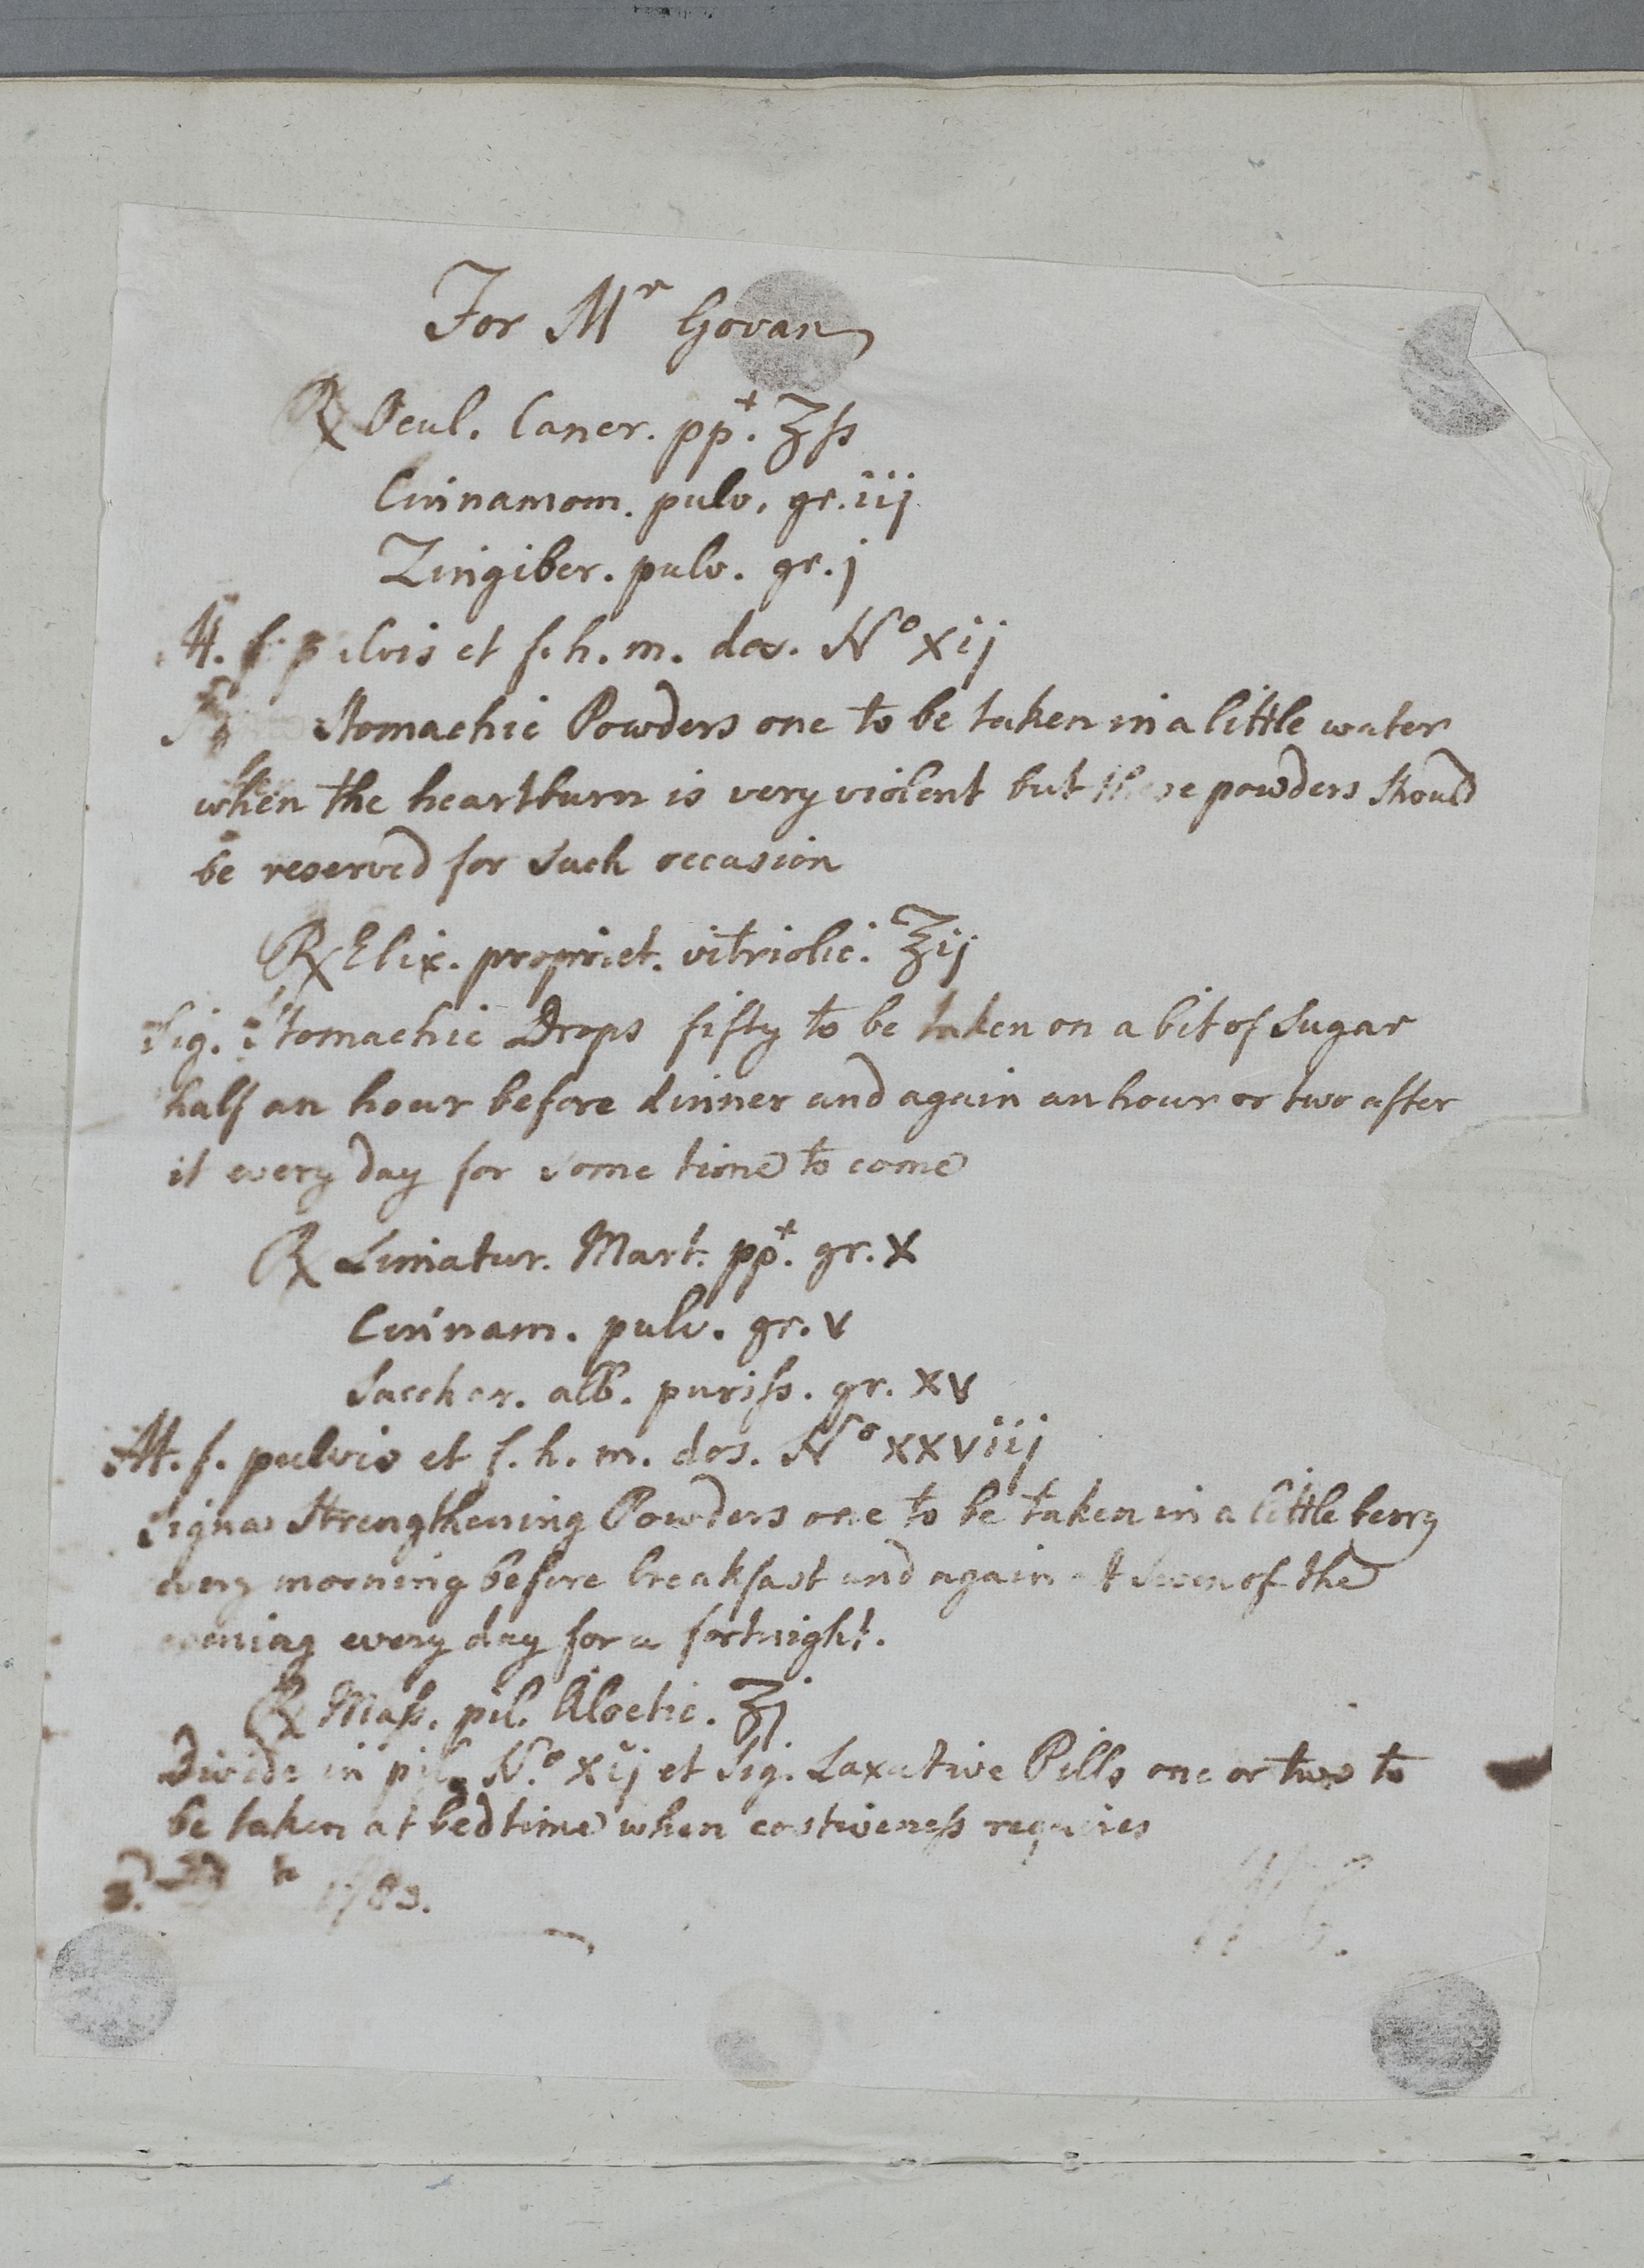 For Mr Govan
℞ Ocul. Cancr. ppt. ʒſs
Cinnamom. pulv. gr. iij
Zingiber. pulv. gr. j
M. f. pulvis et f. h. m. dos. No xij
Stomachic Powders one to be taken in a little water
when the heartburn is very violent but these powders should
be reserved for such occasion
℞ Elix. propriet. vitriolic. ʒij
Sig. Stomachic Drops fifty to be taken on a bit of Sugar
half an hour before dinner and again an hour or two after
it every day for some time to come
℞ Limatur. Mart. ppt. gr. x
Cinnam. pulv. gr. v
Sacchar. alb. puriſs. gr. xv
M. f. pulvis et f. h. m. dos. No xxviij
Signa Strengthening Powders one to be taken in a little berry
every morning before breakfast and again at Seven of the
evening every day for a fortnight.
℞ Maſs. pil. Aloetic. ʒj
Divide in pil. No. xij et Sig. Laxative Pills one or two to
be taken at bedtime when costiveneſs requires
1783.